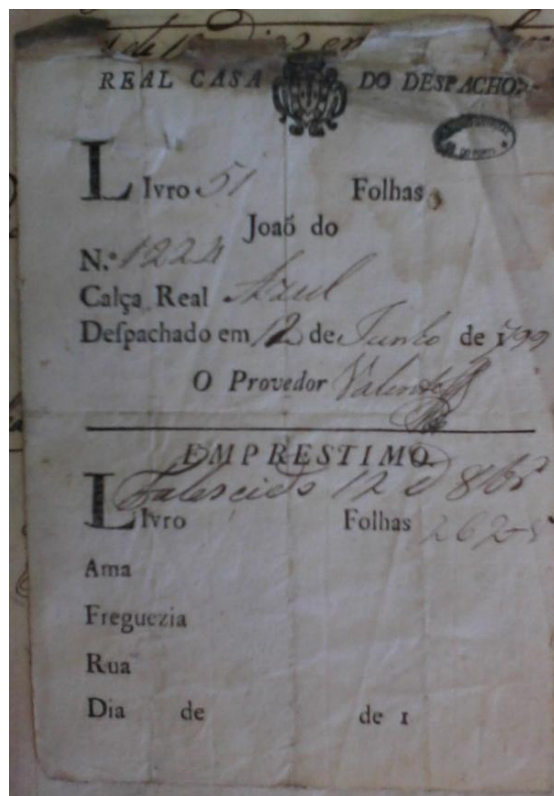 REAL CASA DO DESPACHO.
Livro 51 Folhas
Joaõ do
N.º 1224
Calça Real Azul
Deſpachado em 12 de Junho de 1799
O Provedor Valente
EMPRESTIMO.
Falescido 12 d 8br
Livro Folhas 262
Ama
Freguezia
Rua
Dia de de 1